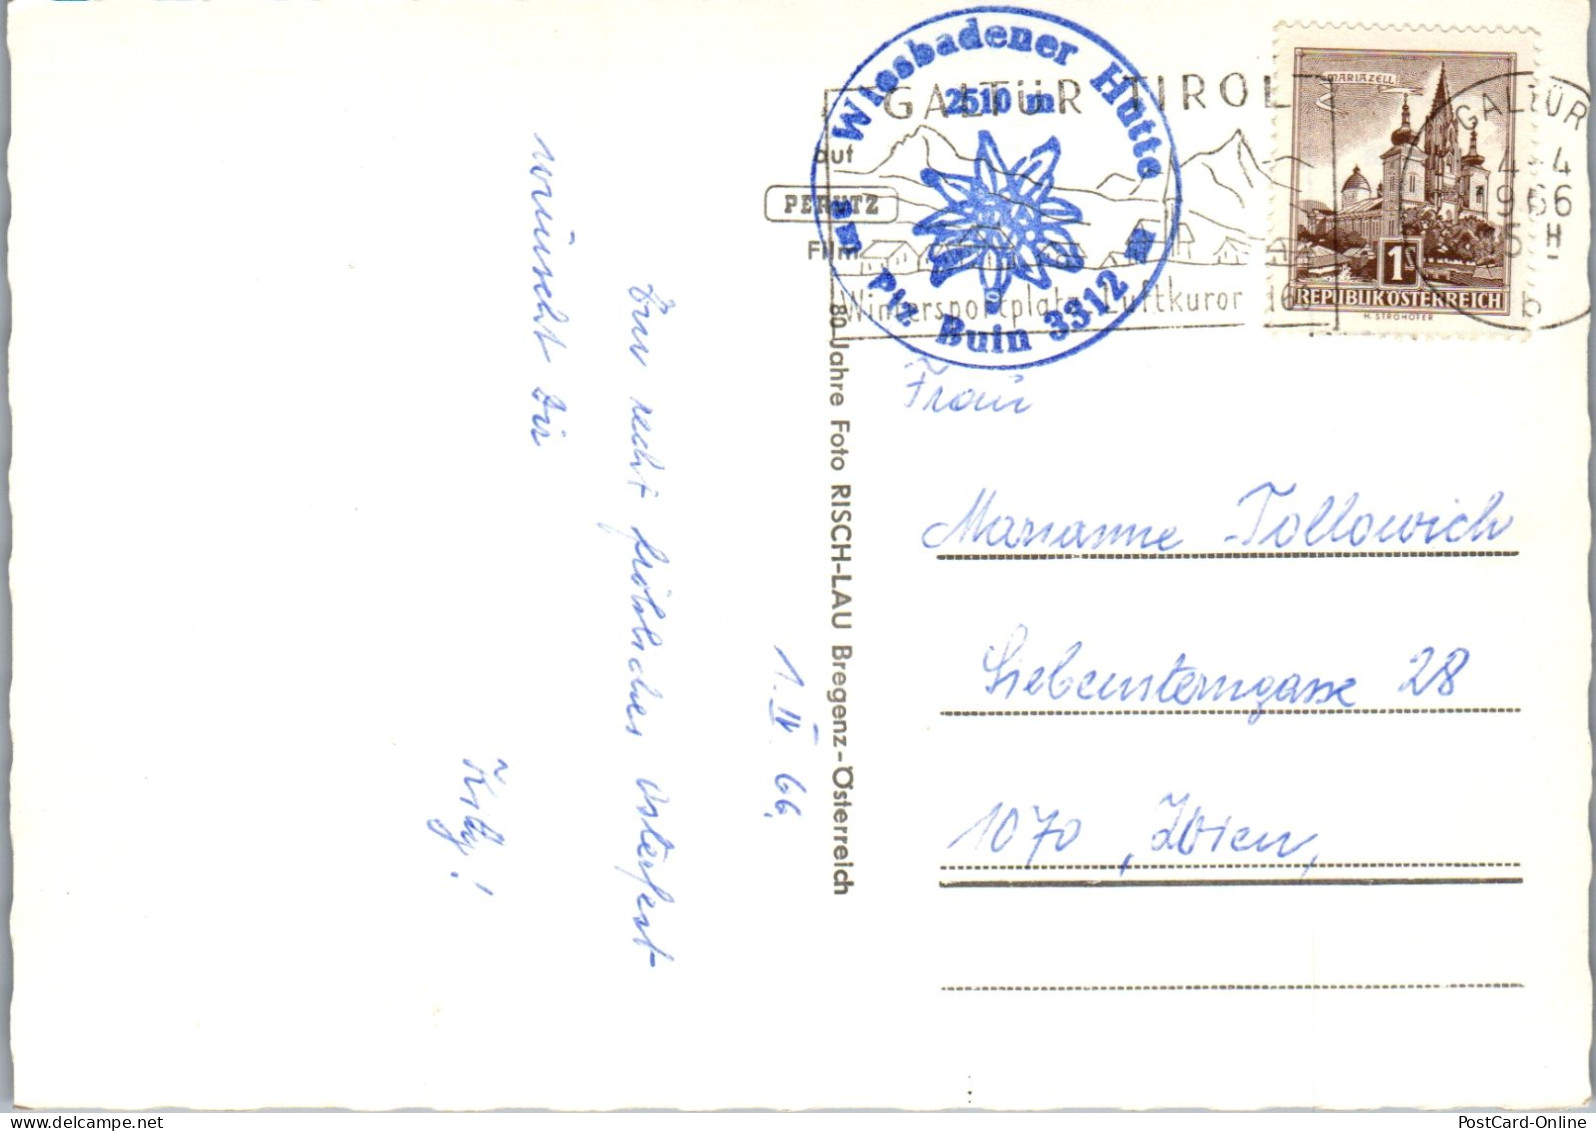 1. IV 66.
Ein recht fröhliches Osterfest
wünscht Dir
Kitty!
auf
PERUTZ
Film
80 Jahre Foto RISCH-LAU Bregenz-Österreich
Wiesbadener Hütte
2510 m
am Piz Buin 3312 m
GALTÜR TIROL
Wintersportplatz Luftkurort
MARIAZELL
1S
REPUBLIK ÖSTERREICH
H. STROHOFER
GALTÜR
b
Frau
Marianne Tollowich
Siebensterngasse 28
1070, Wien,
PostCard-Online